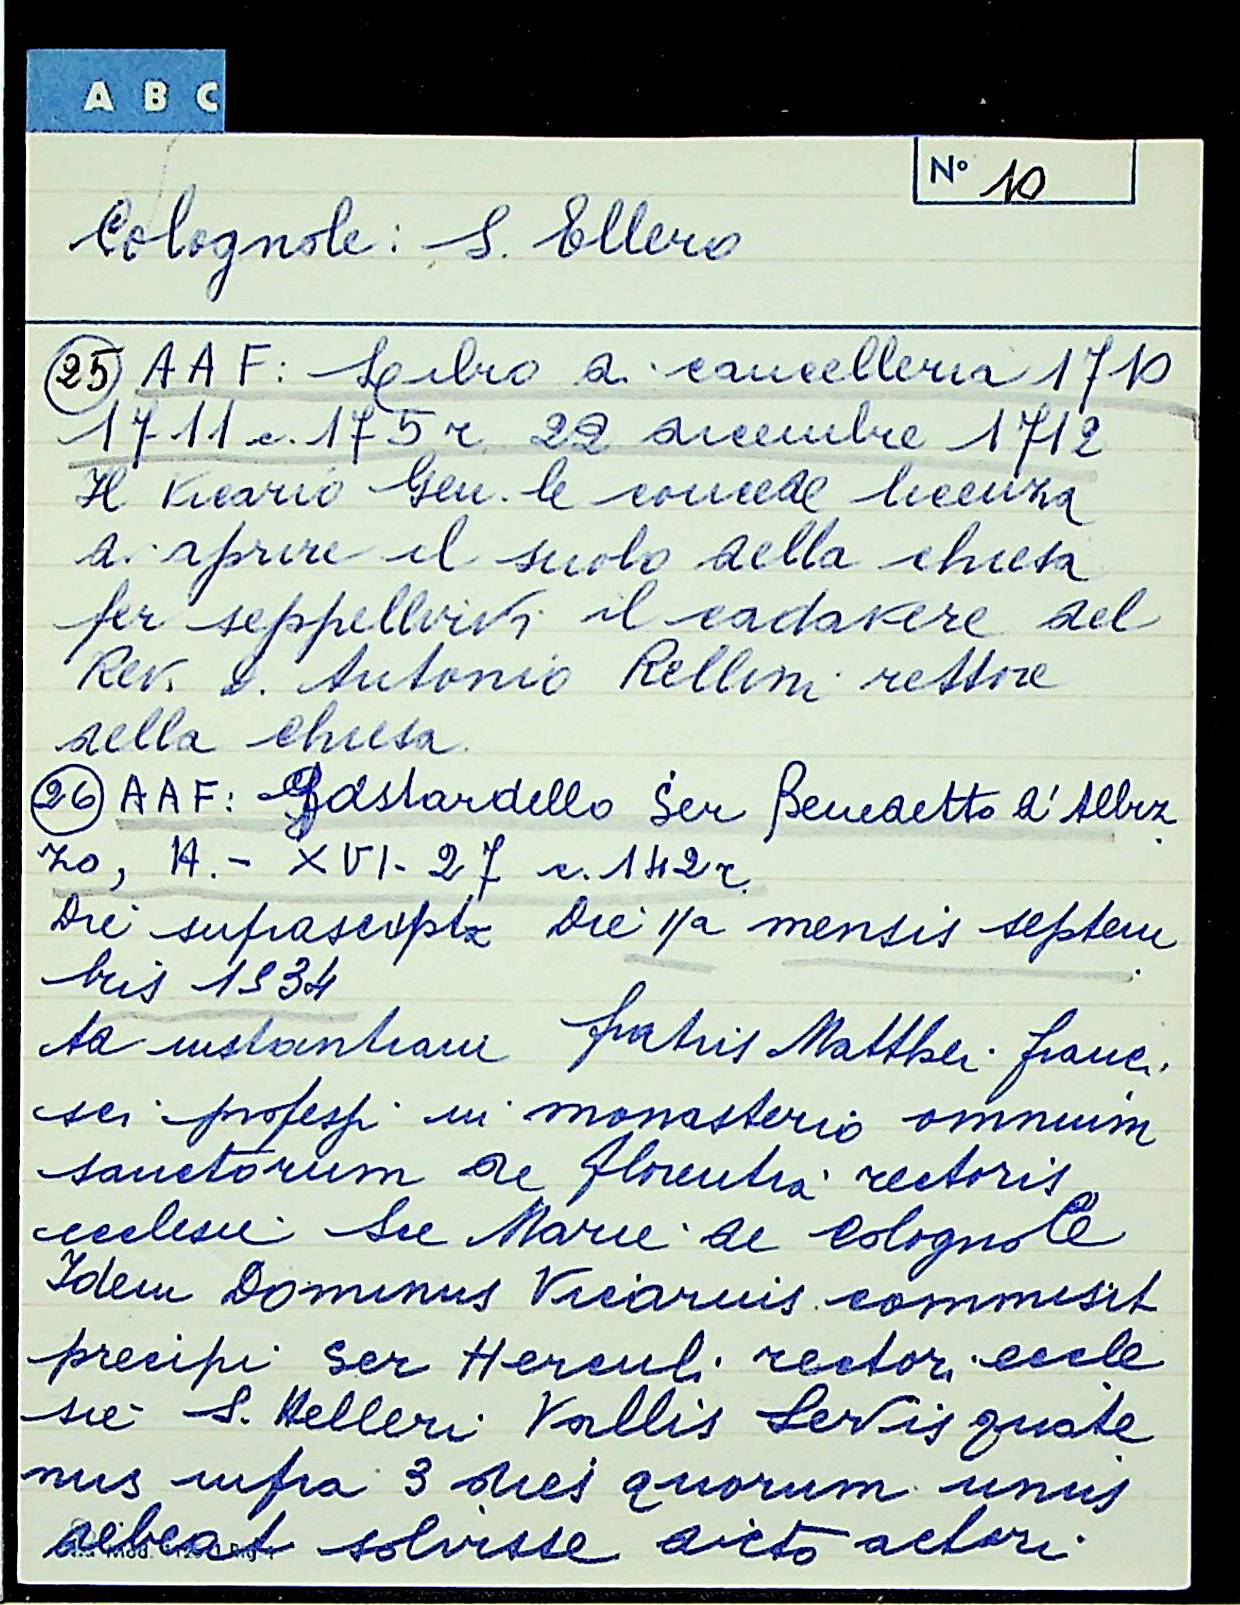 A B C
N° 10
Colognole: S. Ellero
25 AAF: Libro di cancelleria 1710
1711 c. 175 r. 22 dicembre 1712
Il Vicario Gen. le concede licenza
di aprire il suolo della chiesa
per seppellirvi il cadavere del
Rev. D. Antonio Rellini rettore
della chiesa.
26 AAF: Bastardello Ser Benedetto d'Albiz
zo, A. - XVI - 27 c. 142 r.
Die suprascripta Die mensis septem
bris 1534
Ad instantiam fratris Matthei franci
sci professi in monasterio omnium
sanctorum de florentia rectoris
ecclesie Sce Marie de Colognole
Idem Dominus Vicarius commisit
precipi Ser Herculi rectori eccle
sie S. Helleri Vallis Servis quate
nus infra 3 dies quorum unus
debeat solvisse dicto actori